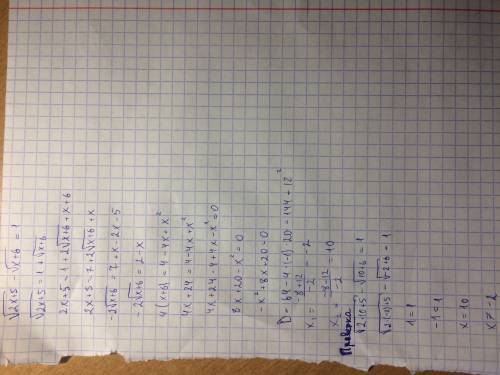 √2x+5 - √x+6 = 1
√2x+5 = 1 + √x+6
2x+5 = 1 + 2√x+6 + x+6
2x+5 = 7 + 2√x+6 + x
-2√x+6 = 7 + x - 2x - 5
-2√x+6 = 2 - x
4(x+6) = 4 - 4x + x²
4x + 24 = 4 - 4x + x²
4x + 24 - 4 + 4x - x² = 0
8x + 20 - x² = 0
-x² + 8x + 20 = 0
D = 64 - 4·(-1)·20 = 144 = 12²
x₁ = -8+12/-2 = -2
x₂ = -8-12/-2 = 10
Проверка
√2·10+5 - √10+6 = 1
√2·(-2)+5 - √-2+6 = 1
1 = 1
-1 = 1
x = 10
x ≠ -2